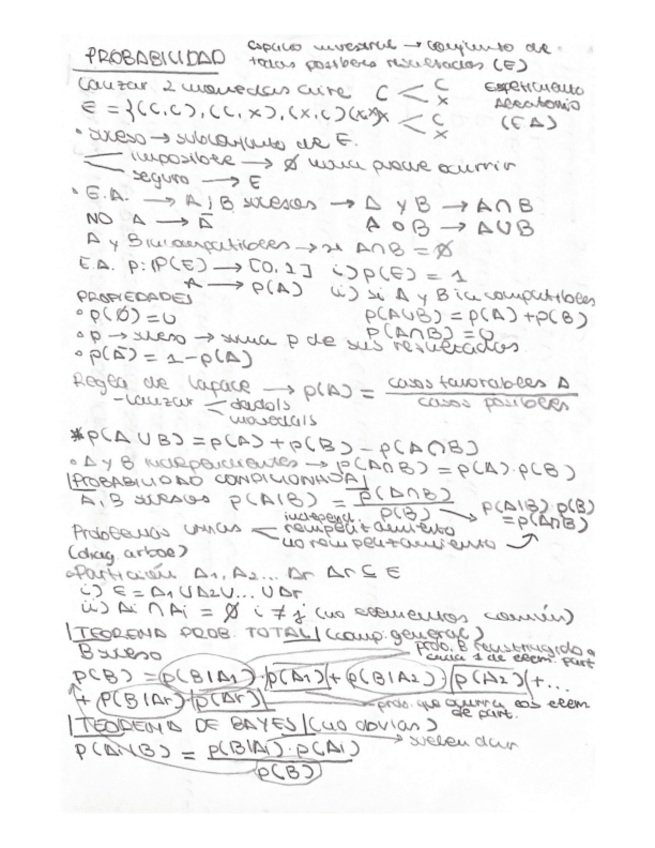 PROBABILIDAD espacio muestral → conjunto de
todos posibles resultados (E)
Lanzar 2 monedas aire C < C X Experimento
E = {(C,C), (C,X), (X,C)(X,X) X < C X Aleatorio (EA)
• suceso → subconjunto de E.
imposible → ∅ nunca puede ocurrir
seguro → E
• E.A. → A, B sucesos → A y B → A∩B
NO A → Ā A o B → A∪B
A y B incompatibles → si A∩B = ∅
E.A. p: P(E) → [0,1] i) p(E) = 1
A → p(A) ii) si A y B incompatibles
PROPIEDADES p(A∪B) = p(A) + p(B)
• p(∅) = 0 p(A∩B) = 0
• p → suceso → suma p de sus resultados
• p(Ā) = 1 - p(A)
Regla de Laplace → p(A) = casos favorables A / casos posibles
- Lanzar < dado/s
moneda/s
* p(A∪B) = p(A) + p(B) - p(A∩B)
• A y B independientes → p(A∩B) = p(A)·p(B)
|PROBABILIDAD CONDICIONADA|
A, B sucesos p(A|B) = p(A∩B) / p(B) → p(A|B)·p(B) = p(A∩B)
independ.
Problemas urnas < reemplazamiento
no reemplazamiento
(diag. árbol)
• Partición A1, A2... Ar Ar ⊆ E
i) E = A1∪A2∪... ∪Ar
ii) Ai ∩ Aj = ∅ i ≠ j (no elementos común)
|TEOREMA PROB. TOTAL| (comp. general)
B suceso prob. B restringido a
cada 1 de elem. part
p(B) = p(B|A1)·p(A1) + p(B|A2)·p(A2) + ...
+ p(B|Ar)·p(Ar) → prob. que ocurra elem
de part.
|TEOREMA DE BAYES| (no obvias)
→ suelen dar
p(Ai|B) = p(B|Ai)·p(Ai) / p(B)